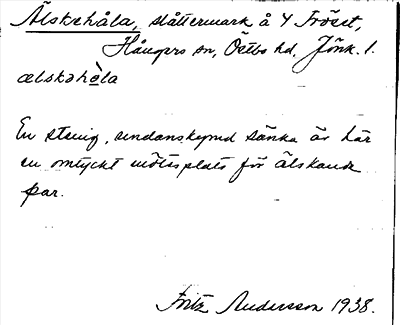 Älskehåla, slåttermark å 4 Fröset,
Hångers sn, Östbo hd, Jönk. l.
ælskəhòla
En stenig, undanskymd sänka är här
en omtyckt mötesplats för älskande
par.
Fritz Andersson 1938.